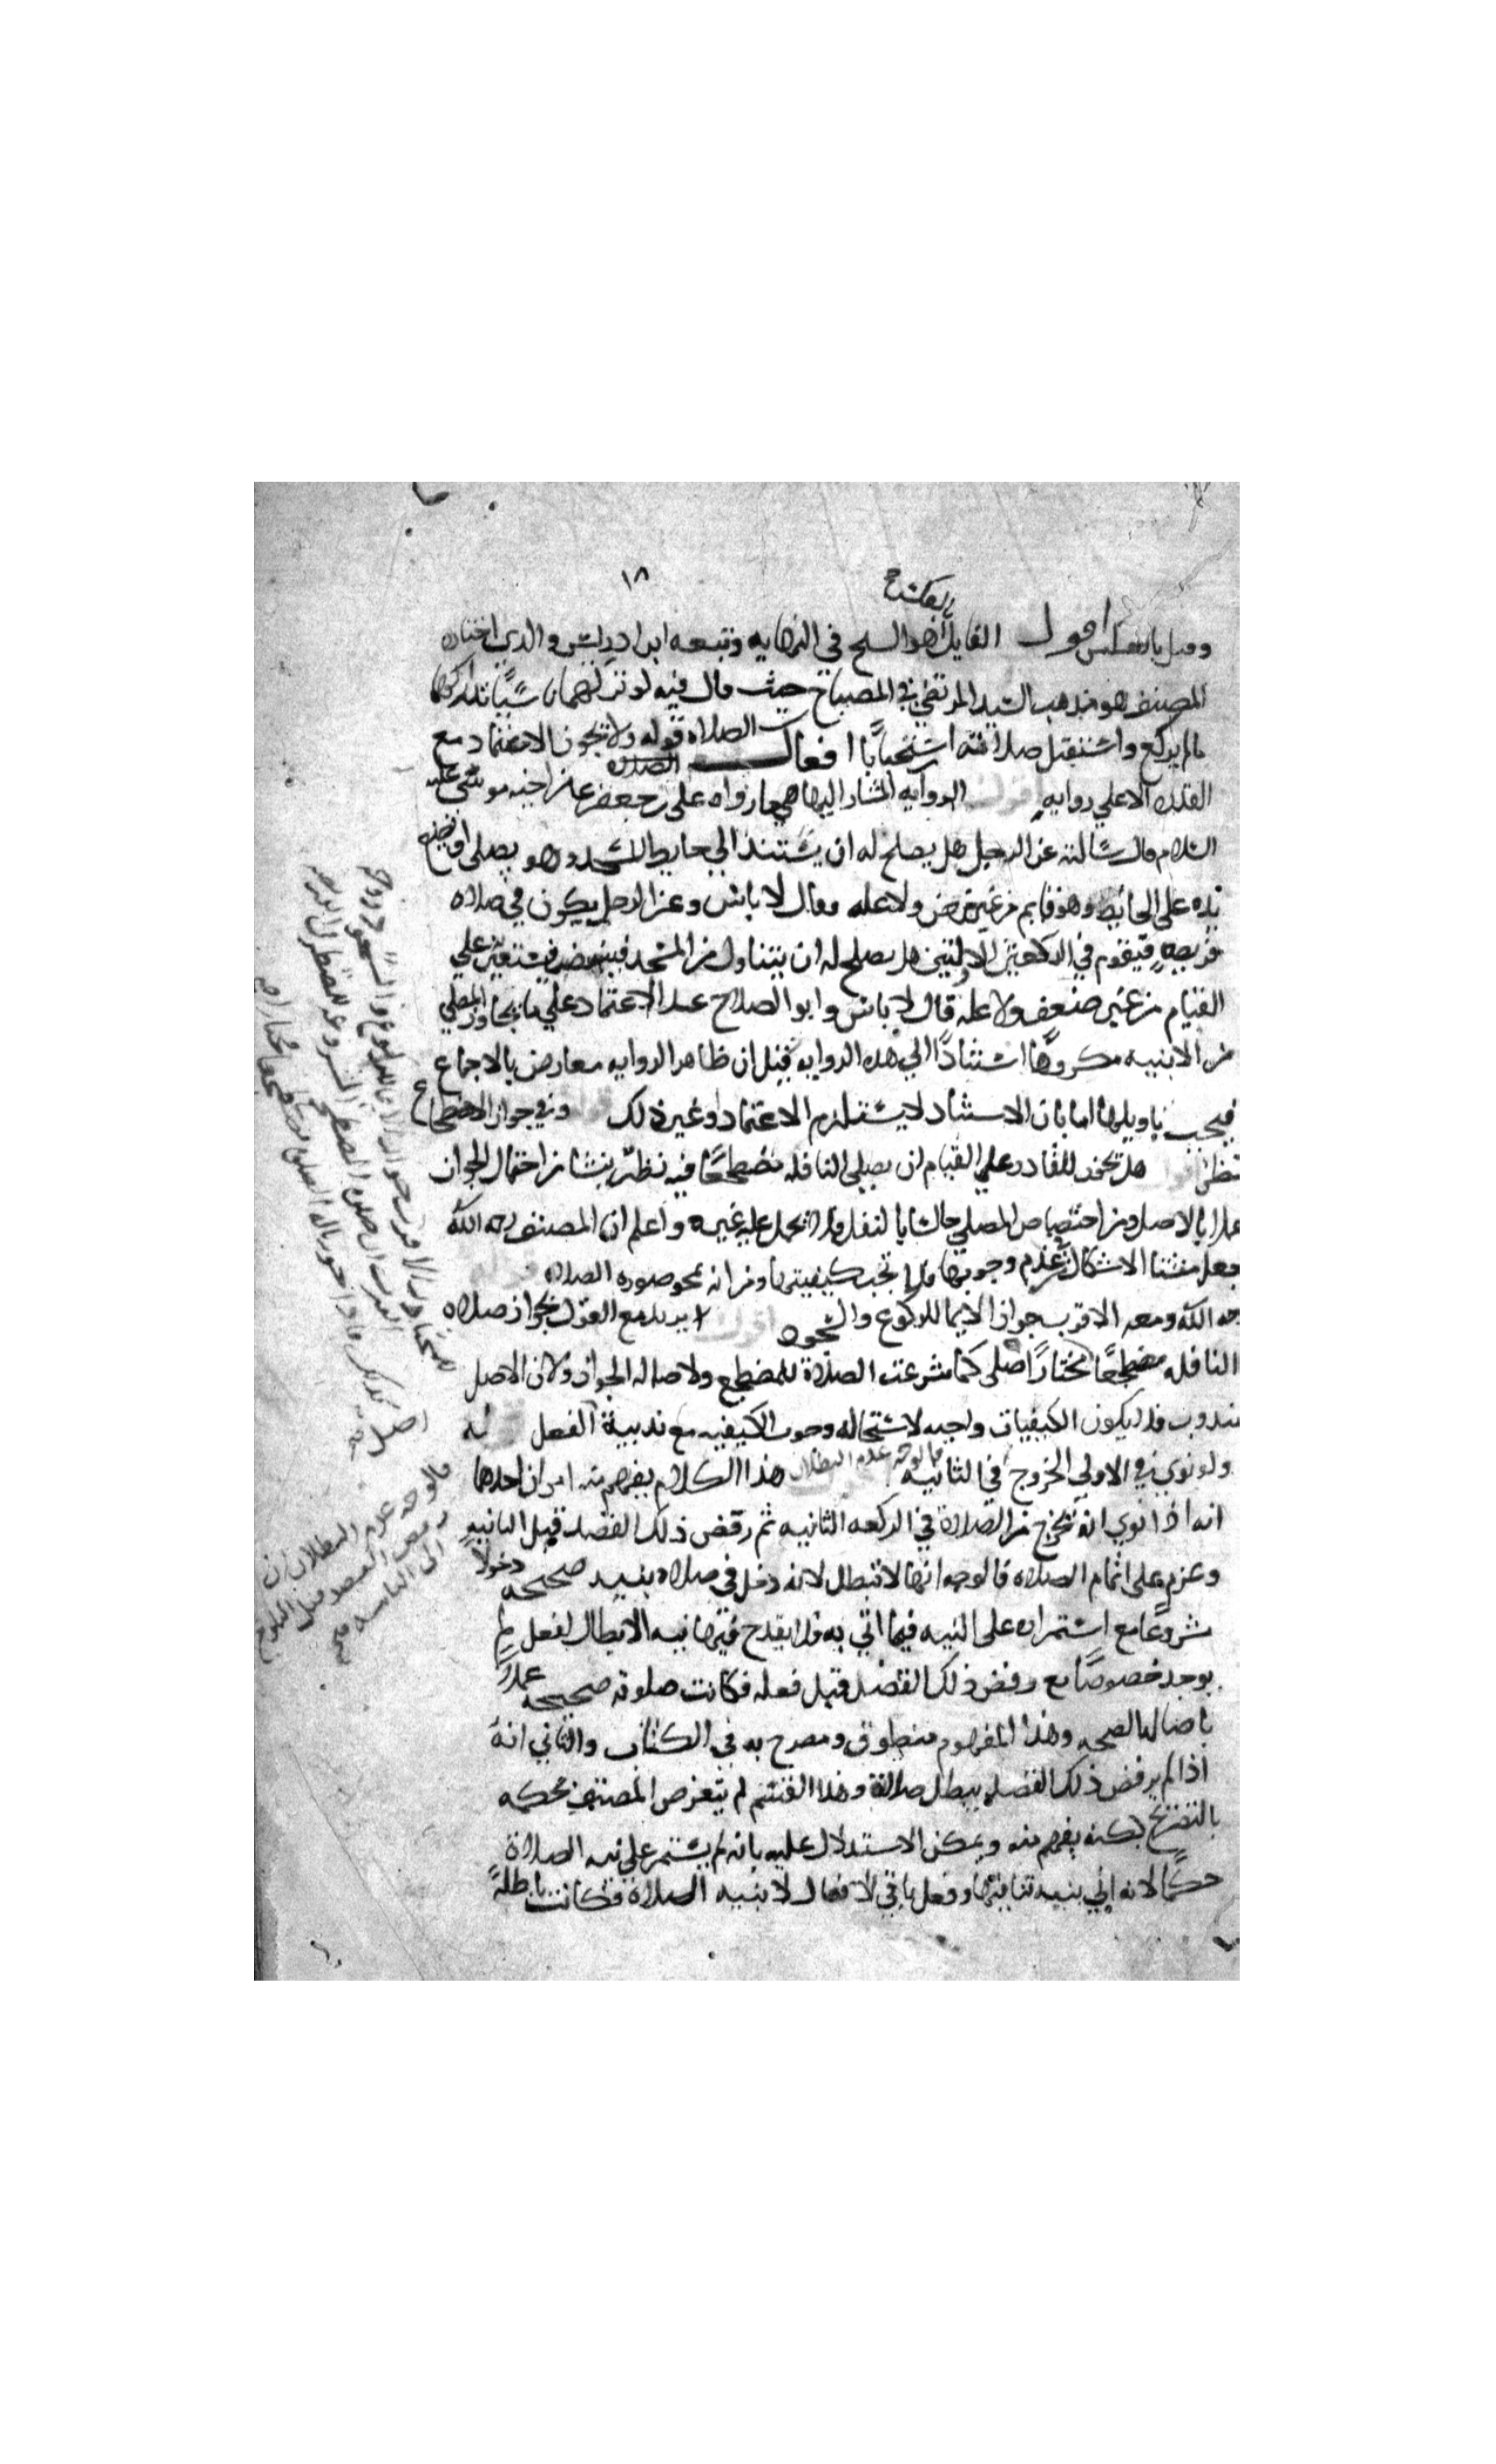 ١٨
بالعكس
وقيل بالعكس اقول القايل هو الشيخ في النهايه وتبعه ابن ادريس والذي اختاره
المصنف هو مذهب السيد المرتضي في المصباح حيث قال فيه لو تركهما ناسيًا تداركهما
مالم يركع واستقبل صلاته استحبابًا افعال الصلاة قوله ولا يجوز الاعتماد مع
القدره الا علي روايه اقول الروايه المشار اليها هي ما رواه علي بن جعفر عن اخيه موسي عليه
السلام قال سالته عن الرجل هل يصلح له ان يستند الي حايط المسجد وهو يصلي او يضع
يده علي الحائط وهو قايم من غير مرض ولا عله فقال لا باس وعن الرجل يكون في صلاه
فريضه فيقوم في الركعتين الاولتين هل يصلح له ان يتناول من المسجد فينهض فيستعين علي
القيام من غير ضعف ولا عله قال لا باس وابو الصلاح عد الاعتماد علي ما يجاور المصلي
من الابنيه مكروهًا استنادًا الي هذه الروايه قيل ان ظاهر الروايه معارض بالاجماع
فيجب تاويلها اما بان الاستناد لا يستلزم الاعتماد او غير ذلك قوله وفي جواز الاضطجاع
نظر اقول هل يجوز للقادر علي القيام ان يصلي النافله مضطجعًا فيه نظر ينشا من احتمال الجواز
عملا بالاصل ومن اختصاص المصلي جالسًا بالنفل فلا يحمل عليه غيره واعلم ان المصنف رحمه الله
جعل منشا الاشكال من عدم وجوبها فلا تجب كيفيتها ومن انه محو صوره الصلاه قوله
رحمه الله ومعه الاقرب جواز الايما للركوع والسجود اقول لا يريد مع القول بجواز صلاه
النافله مضطجعًا مختارًا اصلي كما شرعت الصلاة للمضطجع ولاصاله الجواز ولان الاصل
مندوب فلا يكون الكيفيات واجبه لاستحاله وجوب الكيفيه مع ندبية الفعل قوله
ولو نوي في الاولي الخروج في الثانيه فالوجه عدم البطلان هذا الكلام يفهم منه امران احدهما
انه اذا نوي انه يخرج من الصلاة في الركعه الثانيه ثم رفض ذلك القصد قبل الثانيه
وعزم علي اتمام الصلاه فالوجه انها لا تبطل لانه دخل في صلاه بنيه صحيحه دخولًا
مشروعًا مع استمراره علي النيه فيما اتي به فلا يقدح فيها نيه الابطال لفعل لم
يوجد خصوصًا مع رفض ذلك القصد قبل فعله فكانت صلوته صحيحه عملًا
باصاله الصحه وهذا المفهوم منطوق ومصرح به في الكتاب والثاني انه
اذا لم يرفض ذلك القصد يبطل صلاته وهذا القسم لم يتعرض المصنف لحكمه
بالتصريح لكنه يفهم منه ويمكن الاستدلال عليه بانه لم يستمر علي نيه الصلاة
حكمًا لانه اتي بنيه تنافيها وفعل باقي الافعال لا بنيه الصلاه فكانت باطلةً
فالوجه عدم البطلان ان
رفض القصد قبل البلوغ
الي الثانيه